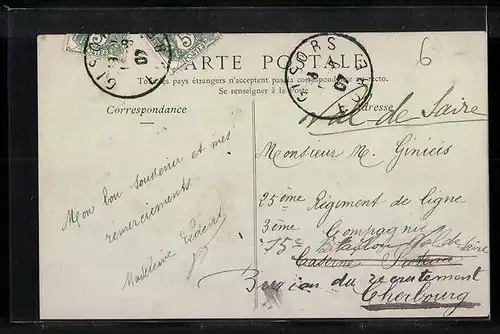 GISORS
EURE
07
GISORS
EURE
07
6
CARTE POSTALE
Tous les pays étrangers n'acceptent pas la correspondance au recto.
Se renseigner à la Poste
Correspondance
Adresse
Val de Saire
Mon bon souvenir et mes
remerciements
Madeleine
Monsieur M. Ginieis
25ème Régiment de ligne
3ème Compagnie
Val de Saire
Caserne
Bureau du recrutement
Cherbourg